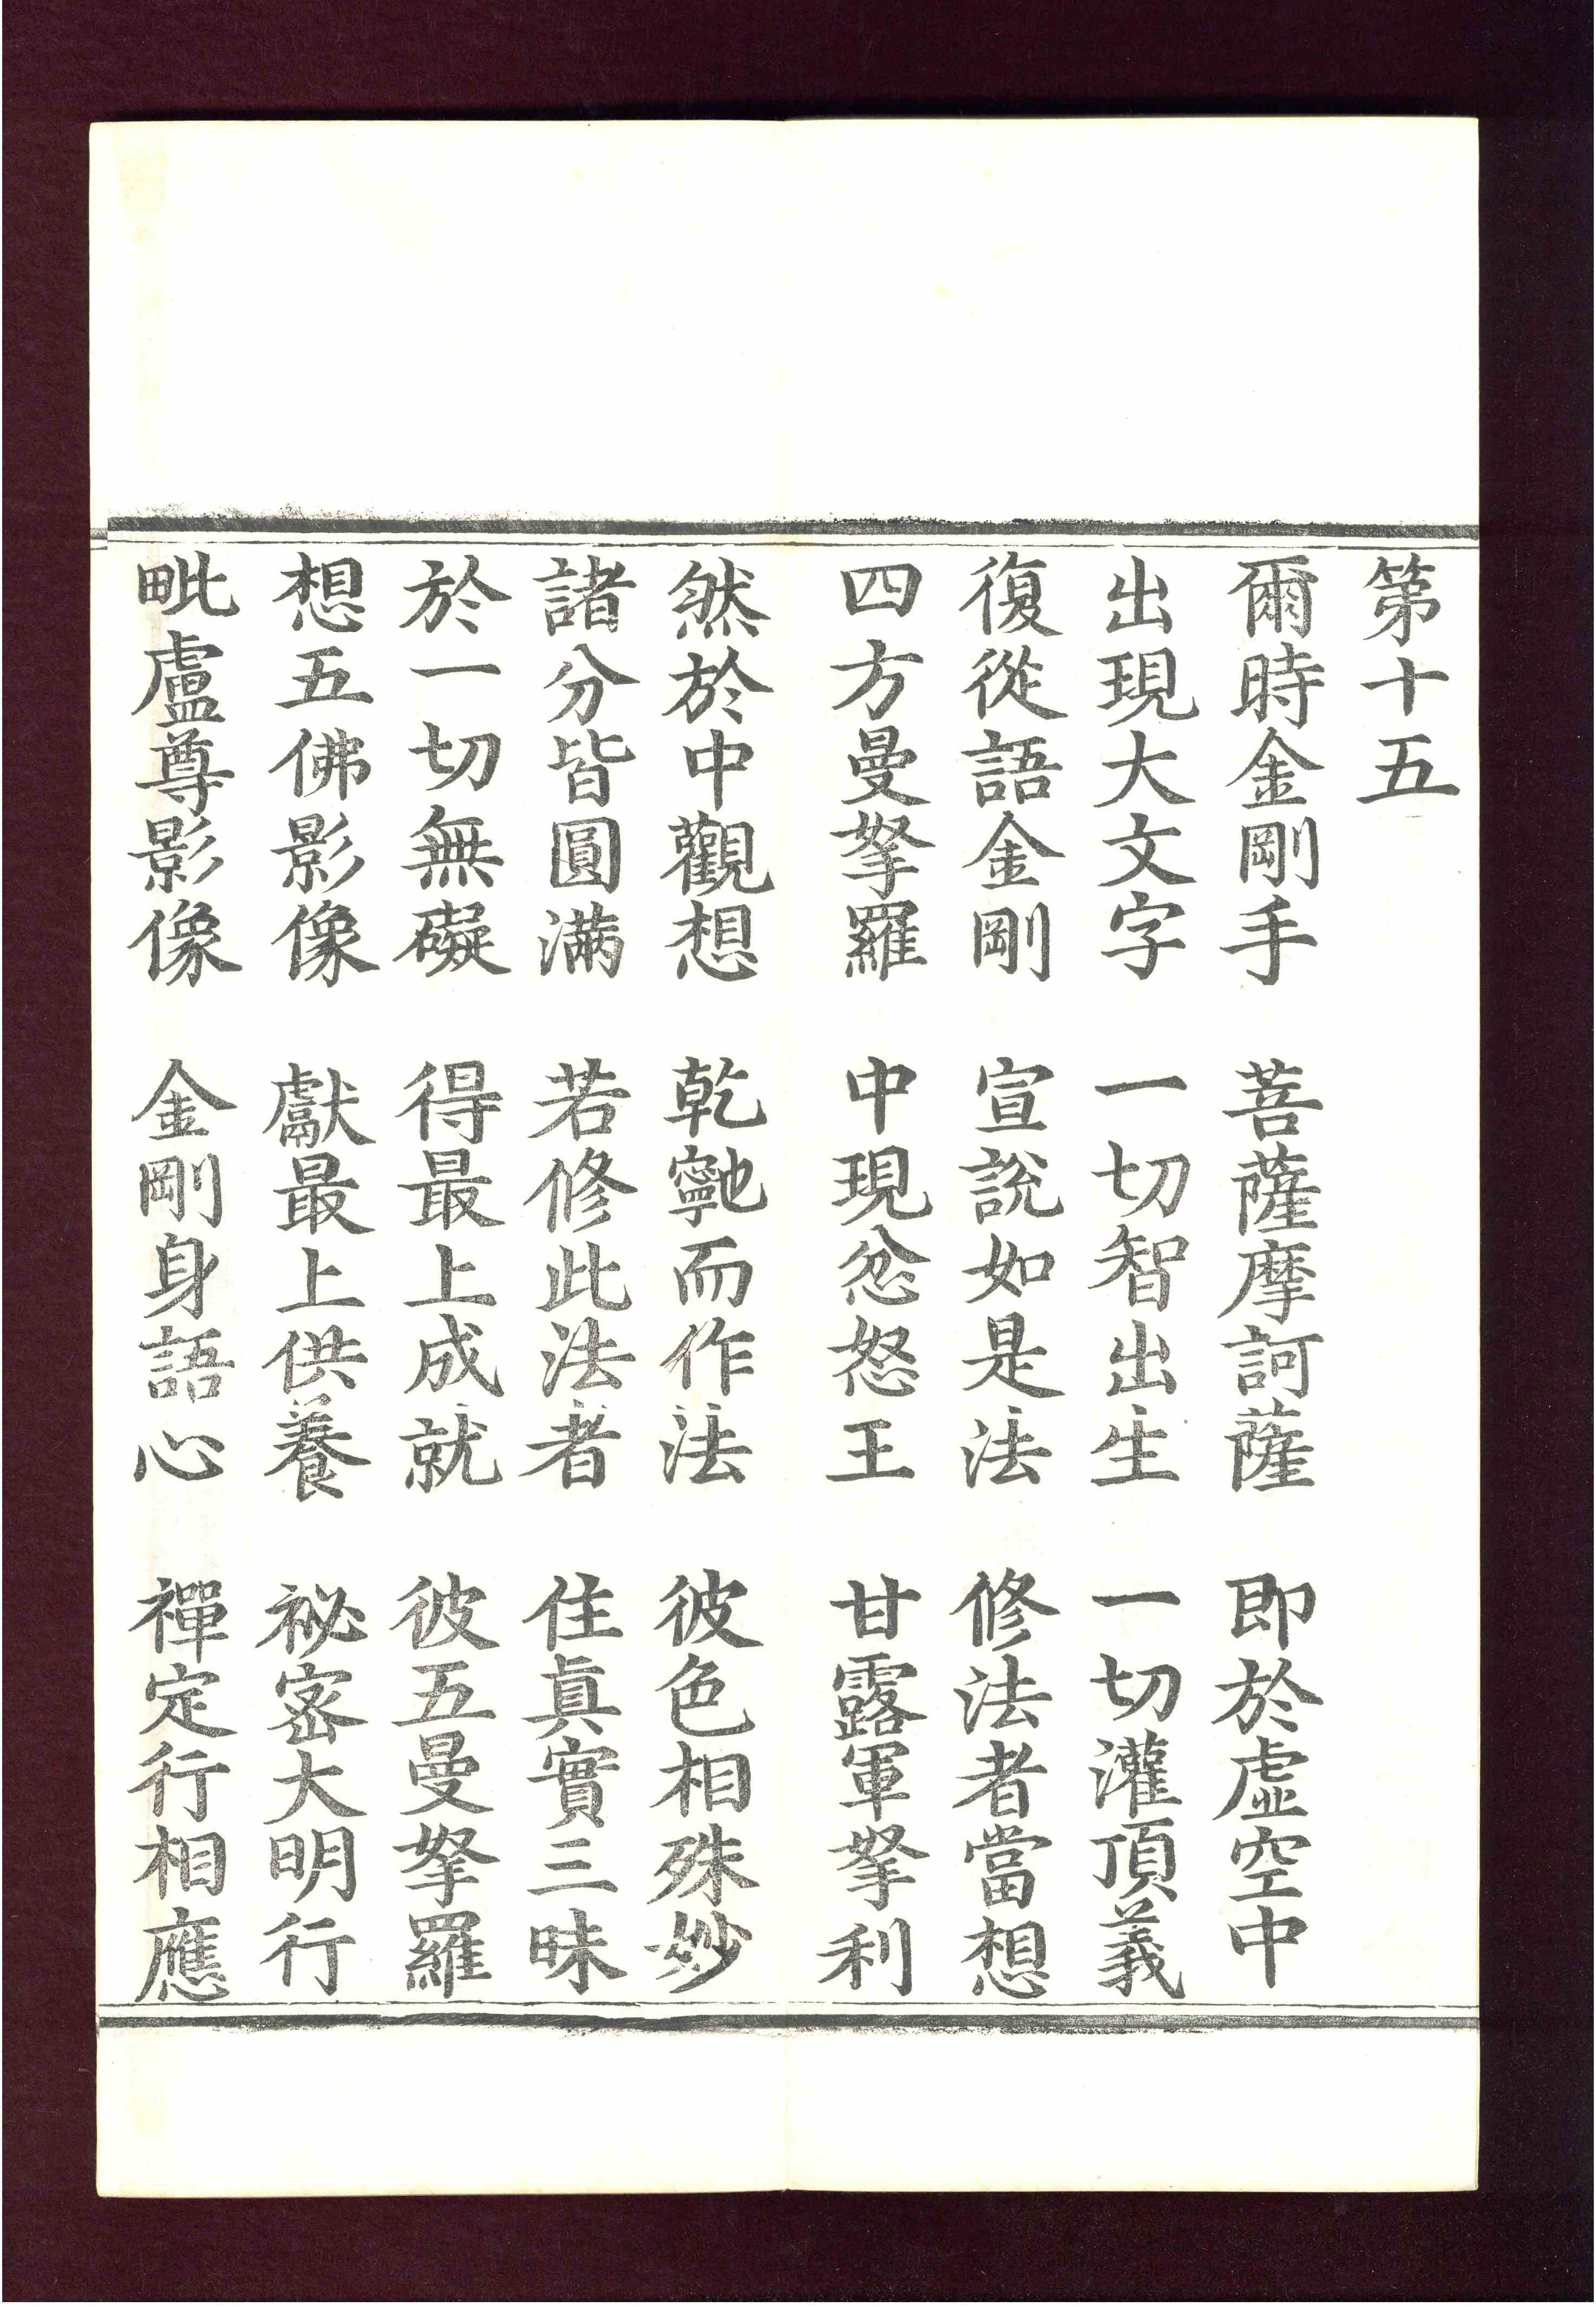 第十五
爾時金剛手　菩薩摩訶薩　即於虛空中
出現大文字　一切智出生　一切灌頂義
復從語金剛　宣說如是法　修法者當想
四方曼拏羅　中現忿怒王　甘露軍拏利
然於中觀想　乾㝹而作法　彼色相殊妙
諸分皆圓滿　若修此法者　住真實三昧
於一切無礙　得最上成就　彼五曼拏羅
想五佛影像　獻最上供養　祕密大明行
毗盧尊影像　金剛身語心　禪定行相應